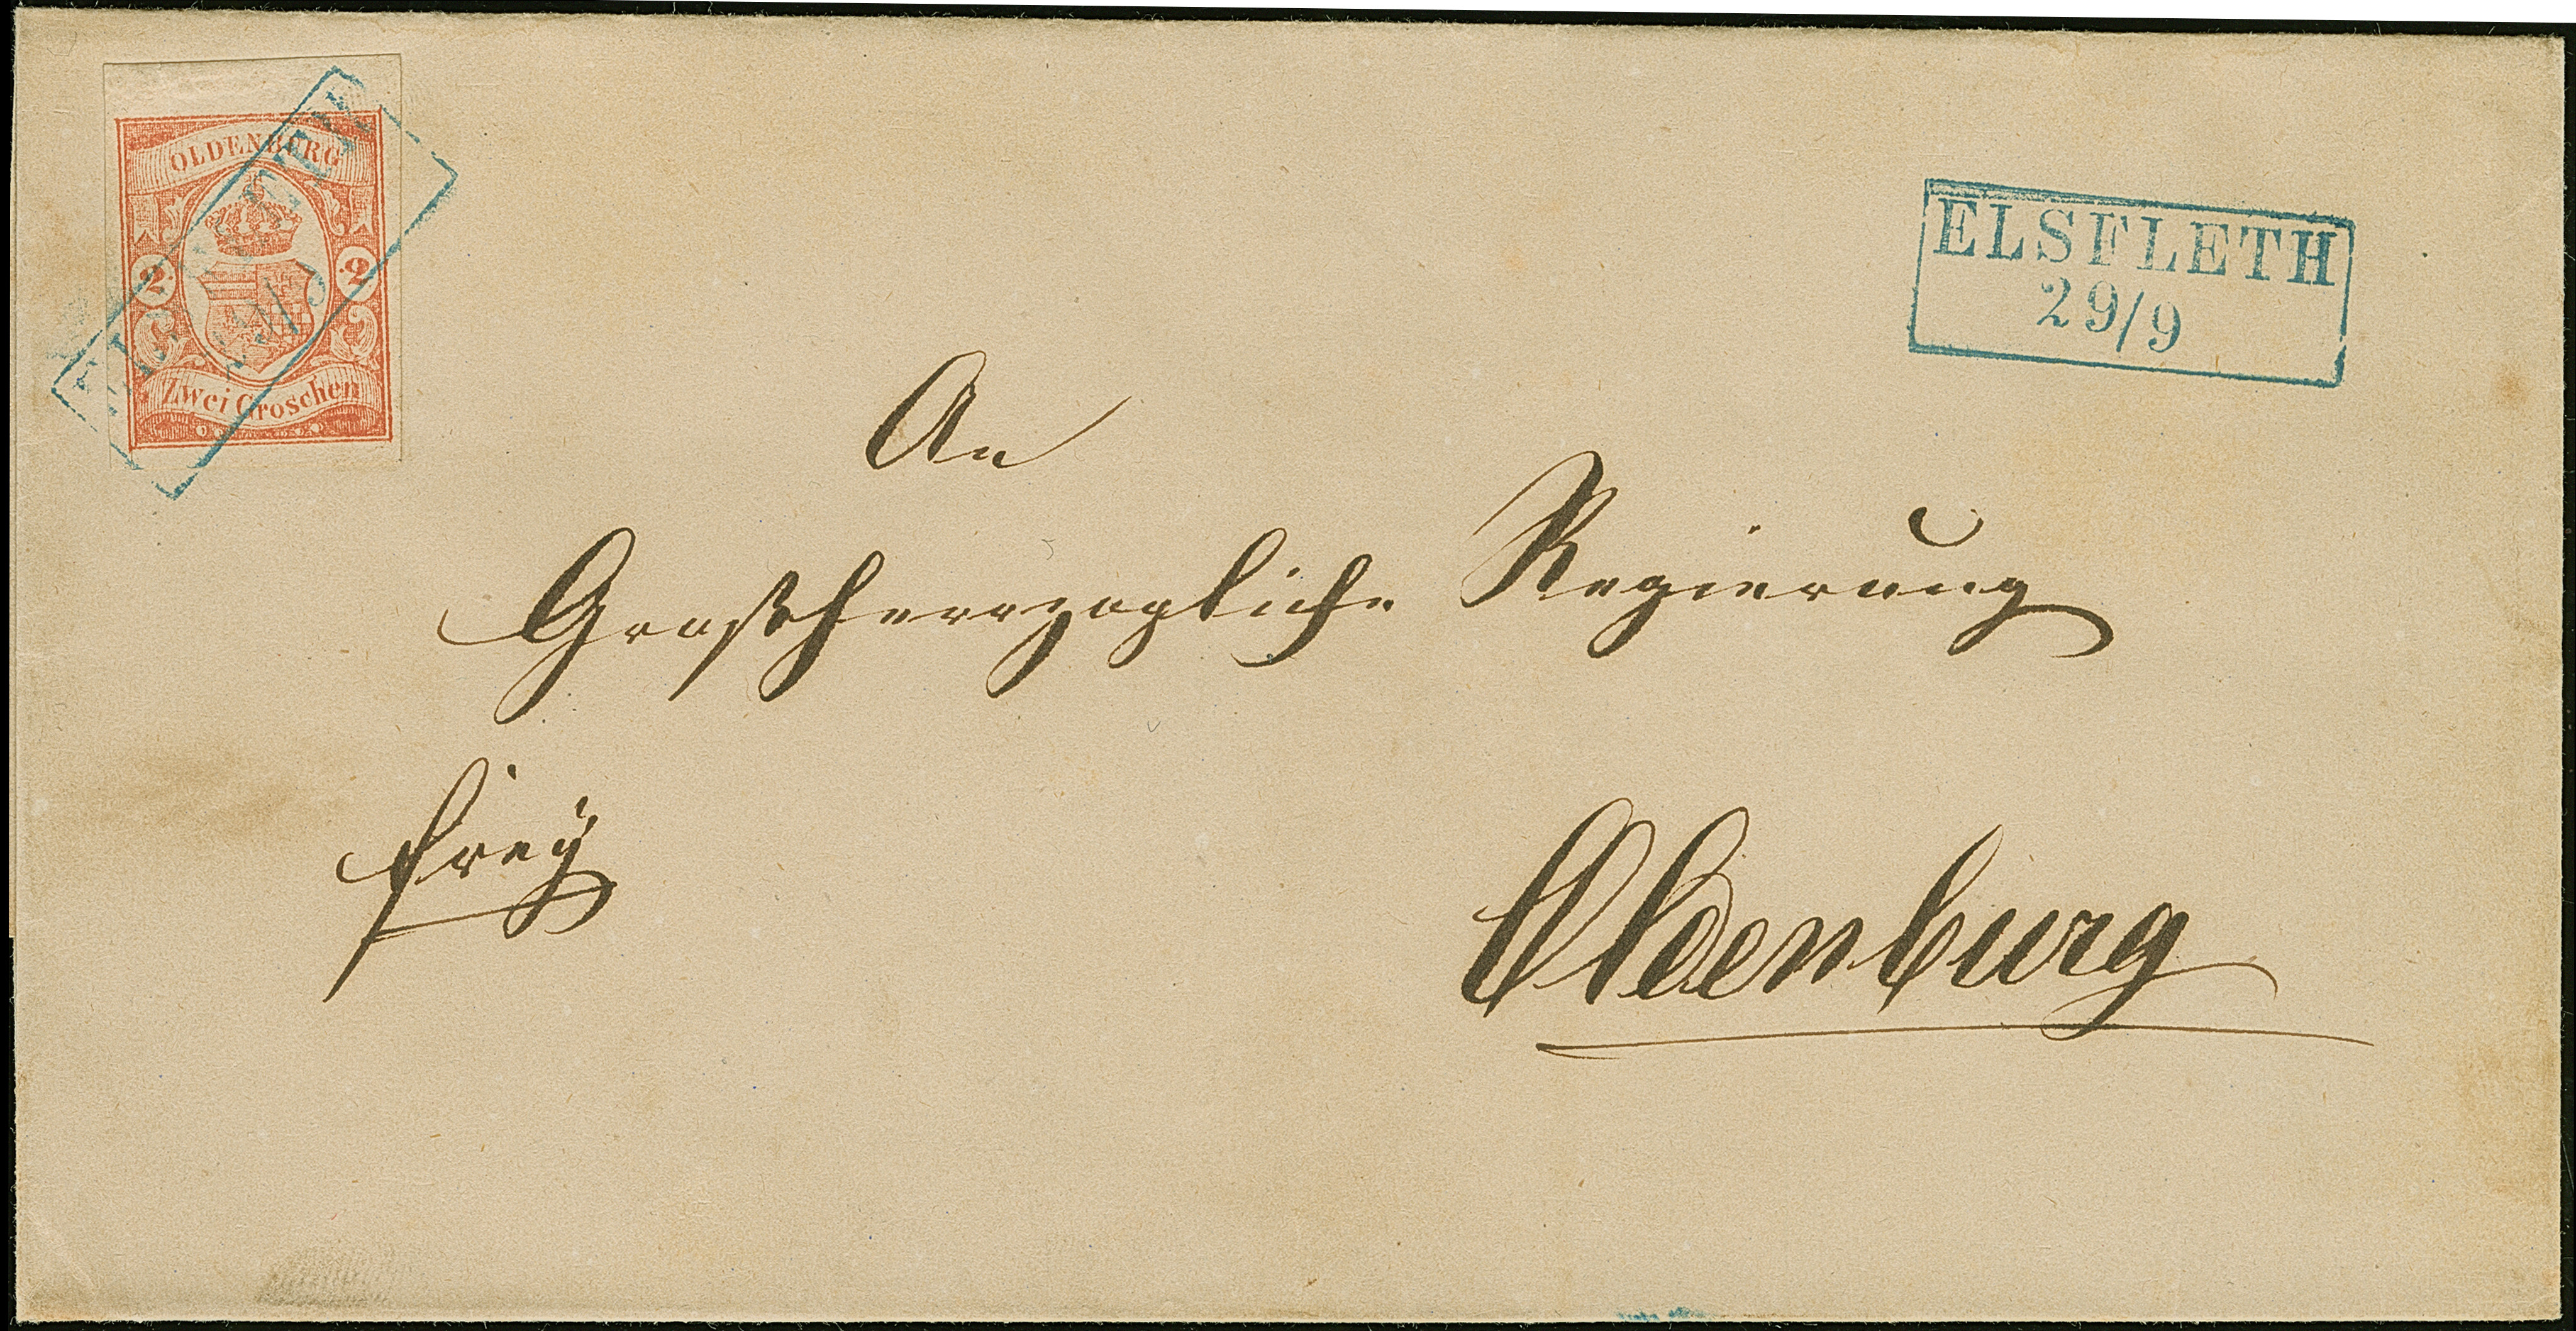 OLDENBURG
2 2
Zwei Groschen
ELSFLETH
29/9
ELSFLETH
29/9
An
Großherzogliche Regierung
frey
Oldenburg